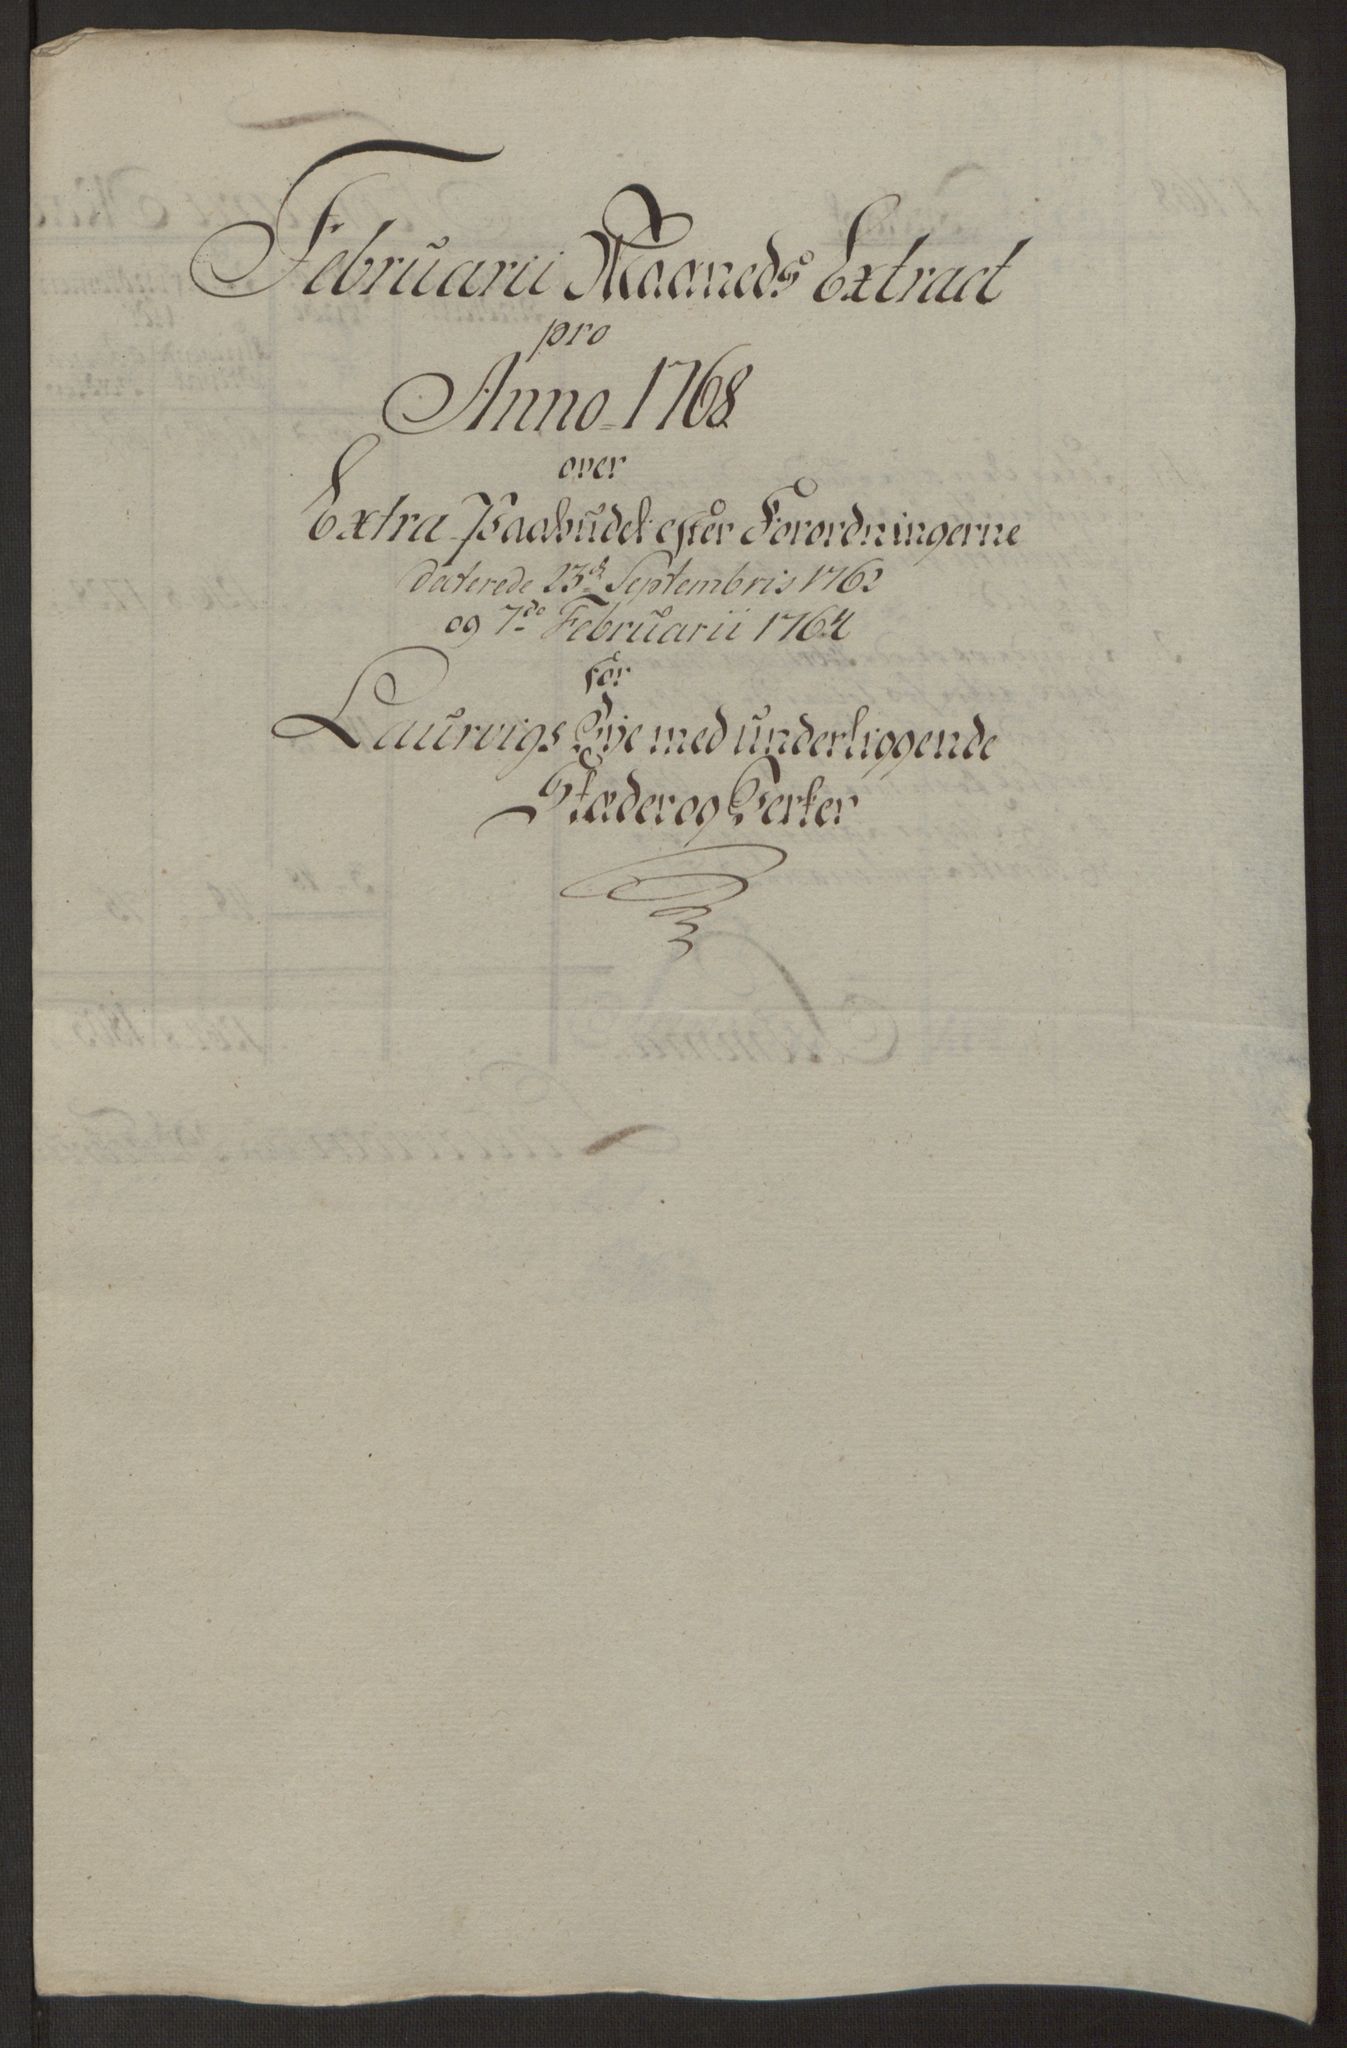 Februarii Maaneds Extract
pro
Anno 1768
over
Extra Paabudet efter Forordningerne
daterede 23de Septembris 1762
og 7de Februarii 1764
for
Laurvigs Bye med underliggende
Stæder og Verker